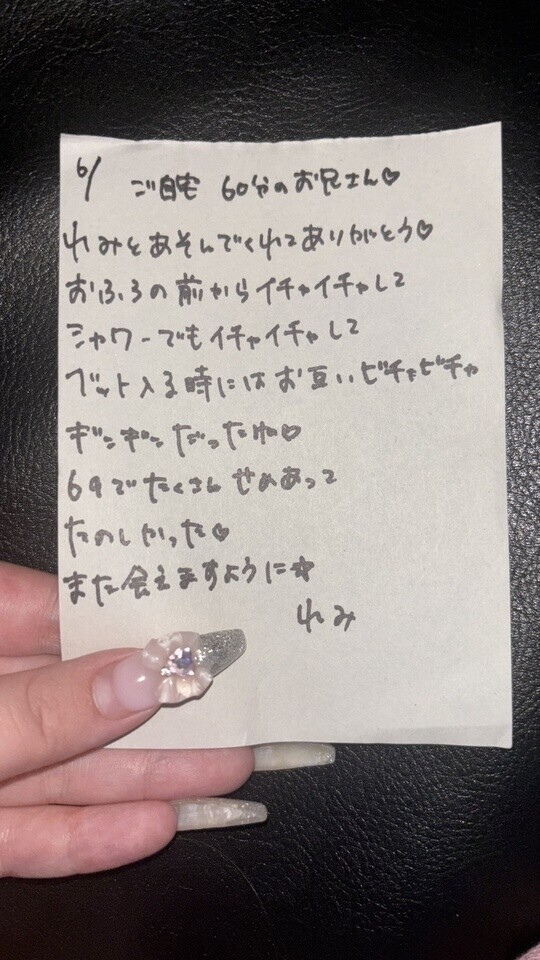 6/
ご自宅 60分のお兄さん♡
れみとあそんでくれてありがとう♡
おふろの前からイチャイチャして
シャワーでもイチャイチャして
ベット入る時にはお互いビチャビチャ
ギンギンだったね♡
69でたくさんせめあって
たのしかった♡
また会えますように☆
れみ